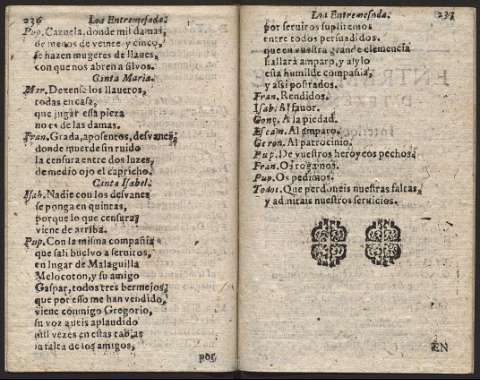 236 Loa Entremesada.
Pup. Cazuela, donde mil damas,
de menos de veinte y cinco,
se hazen mugeres de llaues,
con que nos abren a silvos.
Cinta Maria.
Mar. Detente los llaueros,
todas en casa,
que jugar essa pieza
no es de las damas.
Fran. Grada, aposentos, desvanes,
donde muerde sin ruido
la censura entre dos luzes,
de medio ojo el capricho.
Cinta Isabel.
Isab. Nadie con los desvanes
se ponga en quintas,
porque lo que censuras
viene de arriba.
Pup. Con la misma compañia
que sali buelvo a seruiros,
en lugar de Malaguilla
Melocoton, y su amigo
Gaspar, todos tres bermejos,
que por esso me han vendido,
viene conmigo Gregorio,
su voz aueis aplaudido
mil vezes en estas tablas
la falta de los amigos,
por
Loa Entremesada. 237
por seruiros supliremos
entre todos persuadidos.
que en vuestra grande clemencia
hallarà amparo, y asylo
esta humilde compañia,
y assi postrados.
Fran. Rendidos.
Isab. Al fauor.
Gonç. A la piedad.
Escam. Al amparo.
Geron. Al patrocinio.
Pup. De vuestros heroycos pechos.
Fran. Os rogamos.
Pup. Os pedimos.
Todos. Que perdoneis nuestras faltas,
y admitais nuestros seruicios.
EN